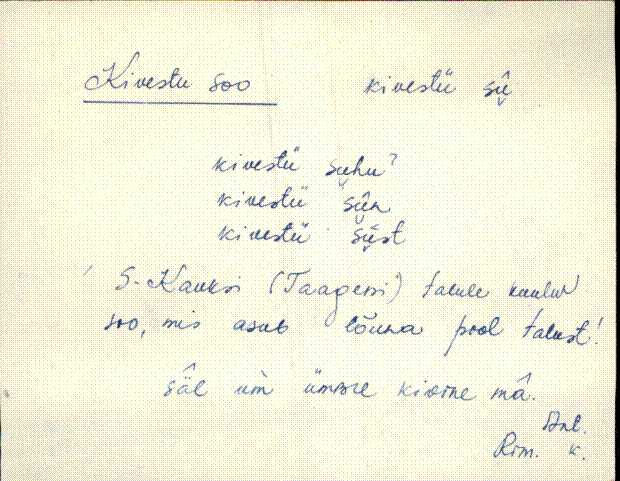 Kivestu soo kivestü sû
kivestü suhu?
kivestü sûn
kivestü sûst
S-Kauksi (Taageri) talule kuuluv
soo, mis asub lõuna pool talust!
säl um ümbre kivine mâ.
Ant.
Rim. k.